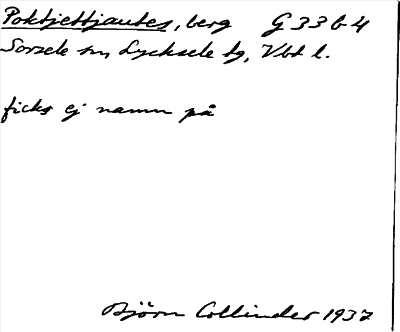 Poktjettjautes, berg G 33 b 4
Sorsele sn, Lycksele tg, Vbt l.
ficks ej namn på
Björn Collinder 1937